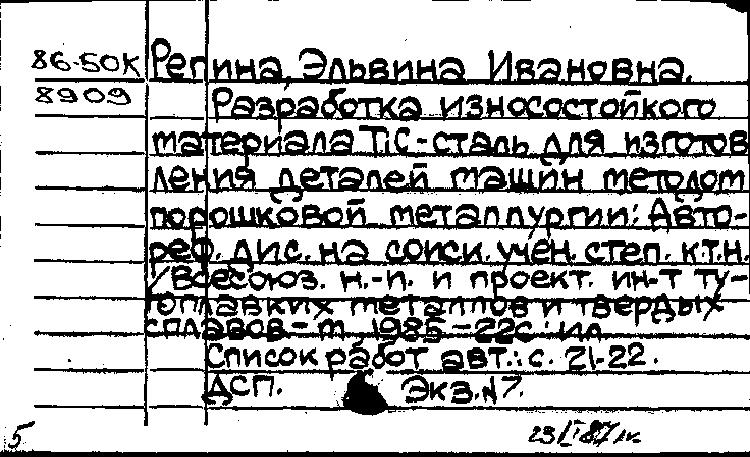 86-50К Репина, Эльвина Ивановна.
8909 Разработка износостойкого
материала TiC-сталь для изготов
ления деталей машин методом
порошковой металлургии: Авто-
реф. дис. на соиск. учен. степ. к.т.н.
/Всесоюз. н.-и. и проект. ин-т ту-
гоплавких металлов и твердых
сплавов - м 1985 - 22с: ил
Список работ авт.: с. 21-22.
ДСП. Экз. №7.
5